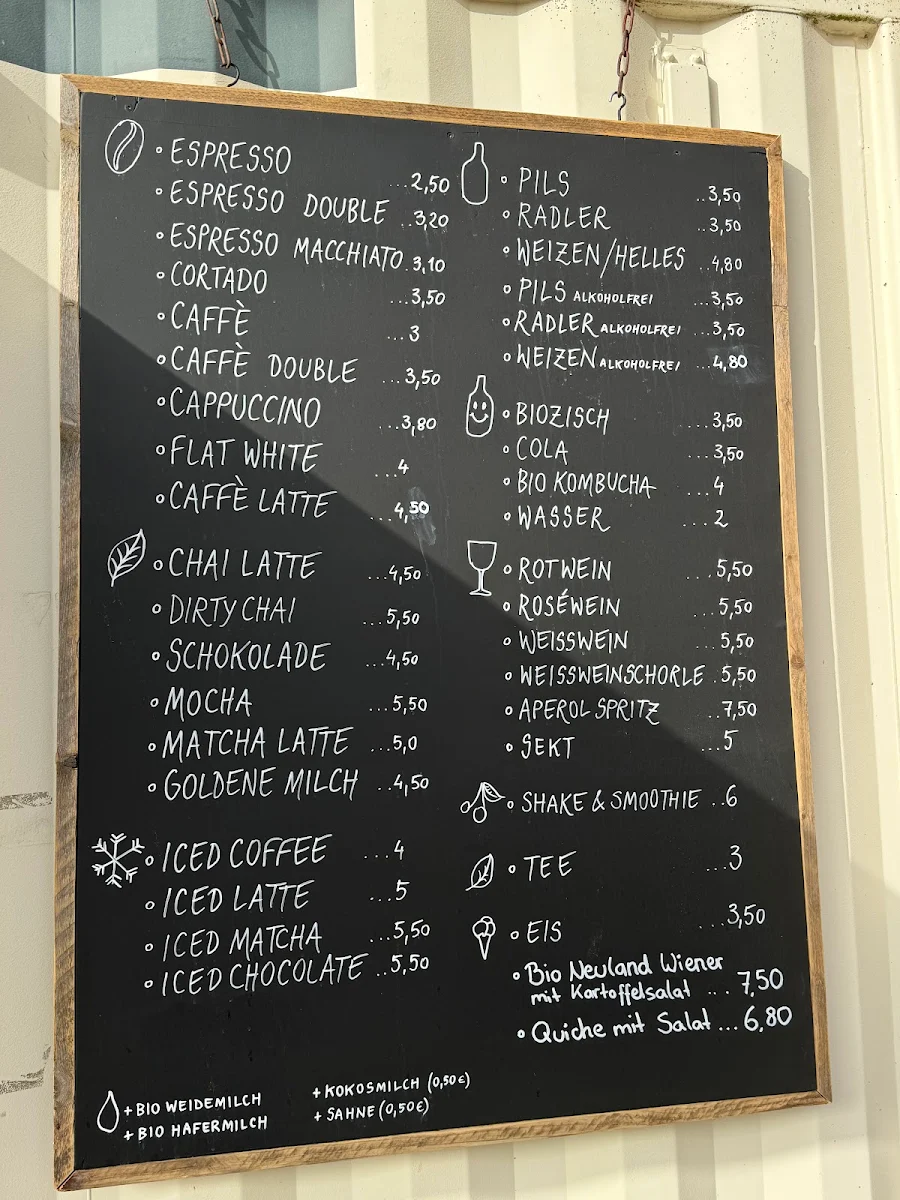 ESPRESSO ...2,50
ESPRESSO DOUBLE ..3,20
ESPRESSO MACCHIATO.3,10
CORTADO ...3,50
CAFFÈ ...3
CAFFÈ DOUBLE ...3,50
CAPPUCCINO ...3,80
FLAT WHITE ...4
CAFFÈ LATTE ...4,50
CHAI LATTE ...4,50
DIRTY CHAI ...5,50
SCHOKOLADE ...4,50
MOCHA ...5,50
MATCHA LATTE ...5,0
GOLDENE MILCH ..4,50
ICED COFFEE ...4
ICED LATTE ...5
ICED MATCHA ...5,50
ICED CHOCOLATE ..5,50
+ BIO WEIDEMILCH
+ BIO HAFERMILCH
+ KOKOSMILCH (0,50€)
+ SAHNE (0,50€)
PILS ..3,50
RADLER ..3,50
WEIZEN/HELLES ..4,80
PILS ALKOHOLFREI ...3,50
RADLER ALKOHOLFREI ..3,50
WEIZEN ALKOHOLFREI ...4,80
BIOZISCH ....3,50
COLA ...3,50
BIO KOMBUCHA ...4
WASSER ...2
ROTWEIN ....5,50
ROSÉWEIN ...5,50
WEISSWEIN ...5,50
WEISSWEINSCHORLE .5,50
APEROL SPRITZ ..7,50
SEKT ...5
SHAKE & SMOOTHIE ..6
TEE ...3
EIS ...3,50
Bio Neuland Wiener
mit Kartoffelsalat ... 7,50
Quiche mit Salat ... 6,80